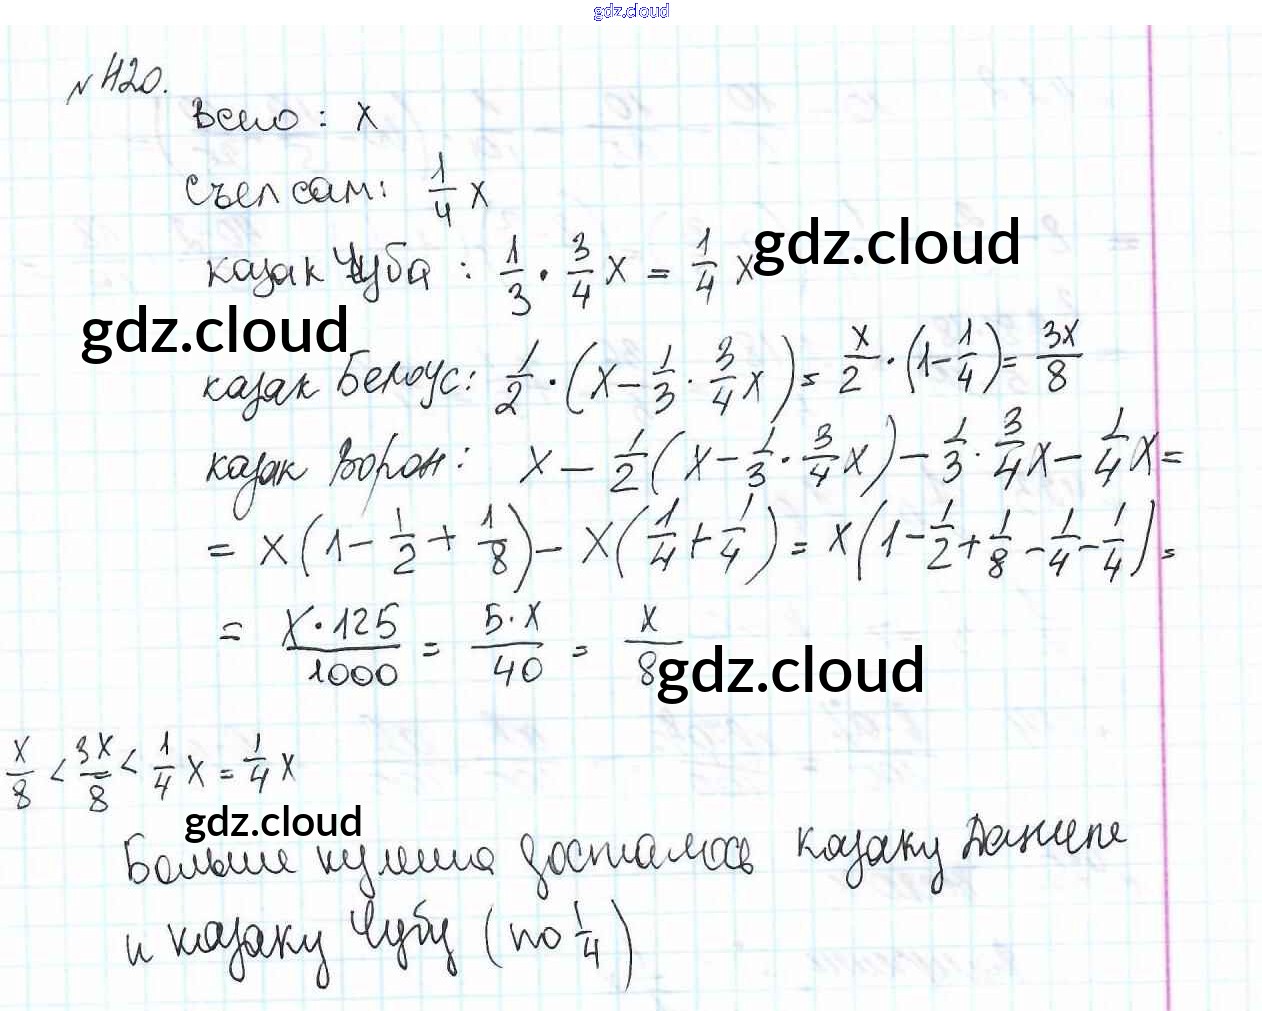 gdz.cloud
№ 420.
Всего : x
Съел сам: 1/4 x
казак Чуба : 1/3 · 3/4 x = 1/4 x
gdz.cloud
gdz.cloud
казак Белоус: 1/2 · (x - 1/3 · 3/4 x) = x/2 · (1 - 1/4) = 3x/8
казак Ворон: x - 1/2 (x - 1/3 · 3/4 x) - 1/3 · 3/4 x - 1/4 x =
= x (1 - 1/2 + 1/8) - x (1/4 + 1/4) = x (1 - 1/2 + 1/8 - 1/4 - 1/4) =
= x · 125/1000 = 5 · x/40 = x/8
gdz.cloud
x/8 < 3x/8 < 1/4 x = 1/4 x
gdz.cloud
Больше кулеша досталось казаку Даниле
и казаку Чубу (по 1/4)